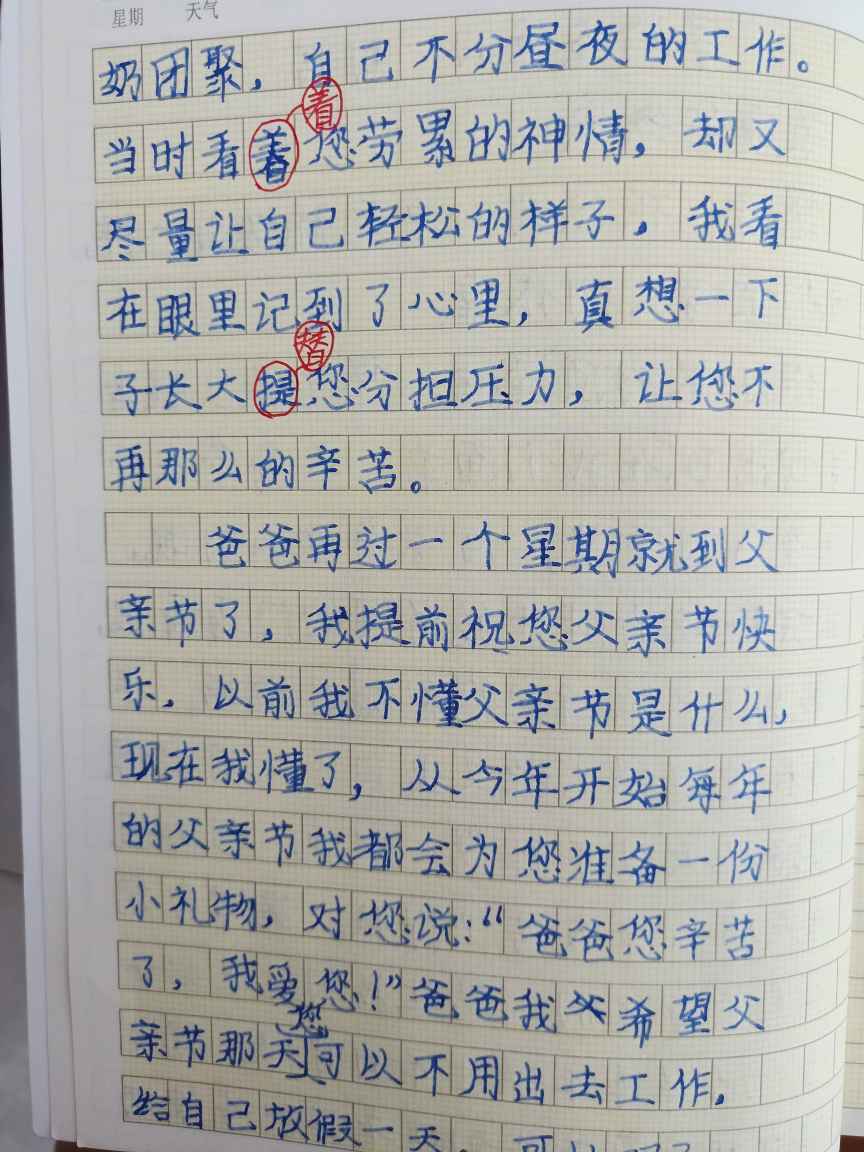 星期 天气
奶团聚，自己不分昼夜的工作。
着
当时看着您劳累的神情，却又
尽量让自己轻松的样子，我看
在眼里记到了心里，真想一下
替
子长大提您分担压力，让您不
再那么的辛苦。
爸爸再过一个星期就到父
亲节了，我提前祝您父亲节快
乐，以前我不懂父亲节是什么，
现在我懂了，从今年开始每年
的父亲节我都会为您准备一份
小礼物，对您说：“爸爸您辛苦
了，我爱您！”爸爸我希望父
您
亲节那天可以不用出去工作，
给自己放假一天，可以